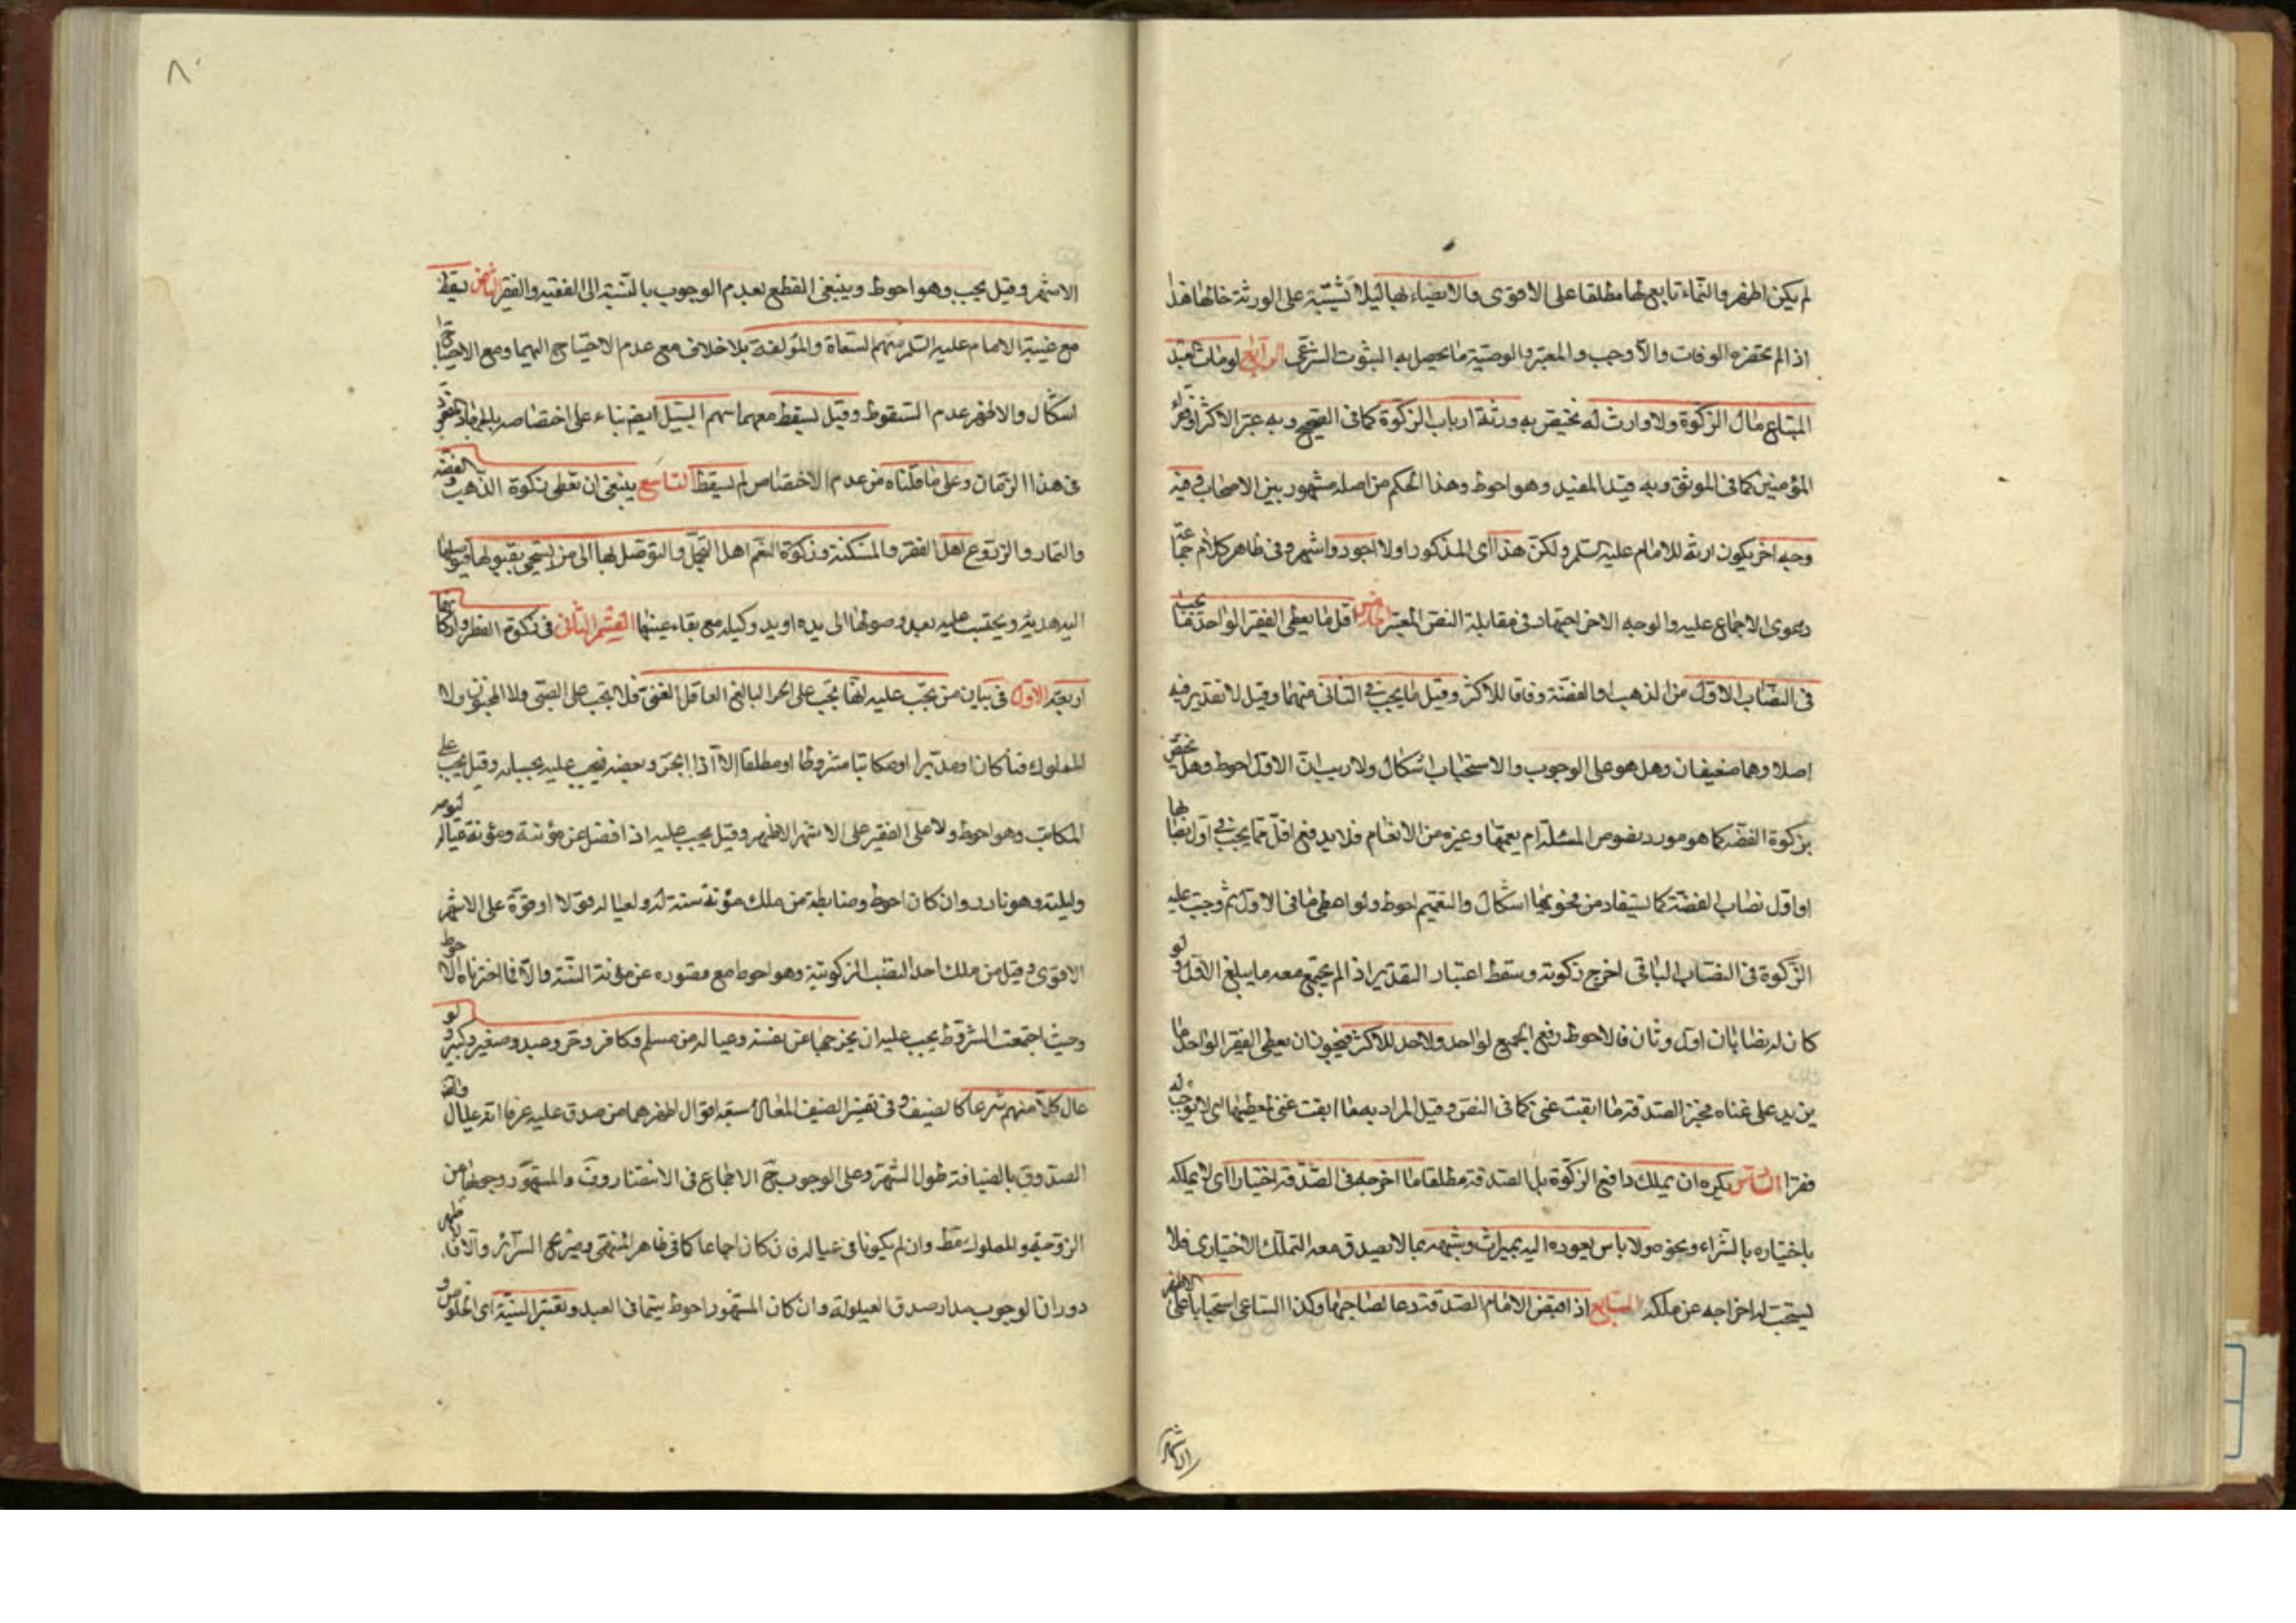 لم يكن اظهر والنماء تابع لها مطلقا على الاقوى والايصاء بها لئلا تشتبه على الورثة خلافها هذا
اذا لم يحضره الوفات والا وجب والمعتبر في الوصية ما يحصل به الثبوت الشرعي الرابع لو مات العبد
المبتاع مال الزكوة ولا وارث له يختص به ورثة ارباب الزكوة كما في الصحيح وبه عبر الاكثر او فقراء
المؤمنين كما في الموثق وبه قيد المفيد وهو احوط وهذا الحكم من اصله مشهور بين الاصحاب وفيه
وجه اخر يكون ارثه للامام عليه السلم ولكن هذا اى المذكور اولا اجود واشهر وفي ظاهر كلام جماعة
دعوى الاجماع عليه والوجه الاخر اجتهاد في مقابلة النص المعتبر الخامس اقل ما يعطى الفقير الواحد ما يجب
في النصاب الاول من الذهب او الفضة وفاقا للاكثر وقيل ما يجب في الثاني منهما وقيل لا تقدير فيه
اصلا وهما ضعيفان وهل هو على الوجوب والاستحباب اشكال ولا ريب ان الاول احوط وهل يختص
بزكوة الفضه كما هو مورد نصوص المسئلة ام يعمها وغيره من الانعام فلا يدفع اقل مما يجب في اول نصابها
او اول نصاب الفضة كما يستفاد من فحويها اشكال والتعميم احوط ولو اعطى ما في الاول ثم وجبت عليه
الزكوة في النصاب الباقي اخرج زكوته وسقط اعتبار التقدير اذا لم يجتمع معه ما يبلغ الاول ولو
كان له نصابان اول وثان فالاحوط دفع الجميع لواحد ولا حد للاكثر فيجوز ان يعطى الفقير الواحد ما
يزيد على غناه فخير الصدقة ما ابقت غنى كما في النص وقيل المراد به ما ابقت غنى لمعطيها اى لا يوجب له
فقرا السادس يكره ان يملك دافع الزكوة بل الصدقة مطلقا ما اخرجه في الصدقة اختيارا اى لا يملكه
باختياره بالشراء ونحوه ولا باس بعوده اليه بميراث وشبهه بما لا يصدق معه التملك الاختيارى فلا
يستحب له اخراجه عن ملكه السابع اذا قبض الامام الصدقة دعا لصاحبها وكذا الساعى استحبابا على الاظهر
الاشهر
٨٠
الاشهر وقيل يجب وهو احوط وينبغي القطع بعدم الوجوب بالنسبة الى الفقيه والفقير الثامن يسقط
مع غيبة الامام عليه السلم سهم السعاة والمؤلفة بلا خلاف مع عدم الاحتياج اليهما ومع الاحتياج
اشكال والاظهر عدم السقوط وقيل يسقط معهما سهم السبيل ايضا بناء على اختصاصه بالجهاد المفقود
في هذا الزمان وعلى ما قلناه من عدم الاختصاص لم يسقط التاسع ينبغي ان تعطى زكوة الذهب والفضه
والثمار والزروع اهل الفقر والمسكنة وزكوة النعم اهل التجمل والتوصل بها الى من يستحي بقبولها فيوصلها
اليه هدية ويحتسب عليه بعد وصولها الى يده او يد وكيله مع بقاء عينها القسم الثاني في زكوة الفطر واركانها
اربعة الاول في بيان من تجب عليه انما تجب على الحر البالغ العاقل الغنى فلا تجب على الصبى ولا المجنون ولا
المملوك قنا كان او مدبرا او مكاتبا مشروطا او مطلقا الا اذا تحرر بعضه فيجب عليه بحسابه وقيل يجب على
المكاتب وهو احوط ولا على الفقير على الاشهر الاظهر وقيل يجب عليه اذا فضل عن مؤنته ومؤنة عياله ليومه
وليلته وهو نادر وان كان احوط وضابطه من ملك مؤنة سنة له ولعياله قولا او قوة على الاشهر
الاقوى وقيل من ملك احد النصب الزكوتية وهو احوط مع قصوره عن مؤنة السنة والا فما اخترناه الاحوط
وحيث اجتمعت الشروط يجب عليه ان يخرجها عن نفسه وعياله من مسلم وكافر وحر وعبد وصغير وكبير ولو
عال كلا منهم تبرعا كالضيف وفي تفسير الضيف المعال سبعة اقوال اظهرها من صدق عليه عرفا انه عيال وافقه
الصدوق بالضيافة طول الشهر وعلى الوجوب ح الاجماع في الانتصار وف والمشهور وجوبها من
الزوجة والمملوك مط وان لم يكونا في عياله فان كان اجماعا كما في ظاهر المنتهى وصريح السرائر والا فالاظهر
دوران الوجوب مدار صدق العيلولة وان كان المشهور احوط سيما في العبد وتعتبر النية اى الخلوص و